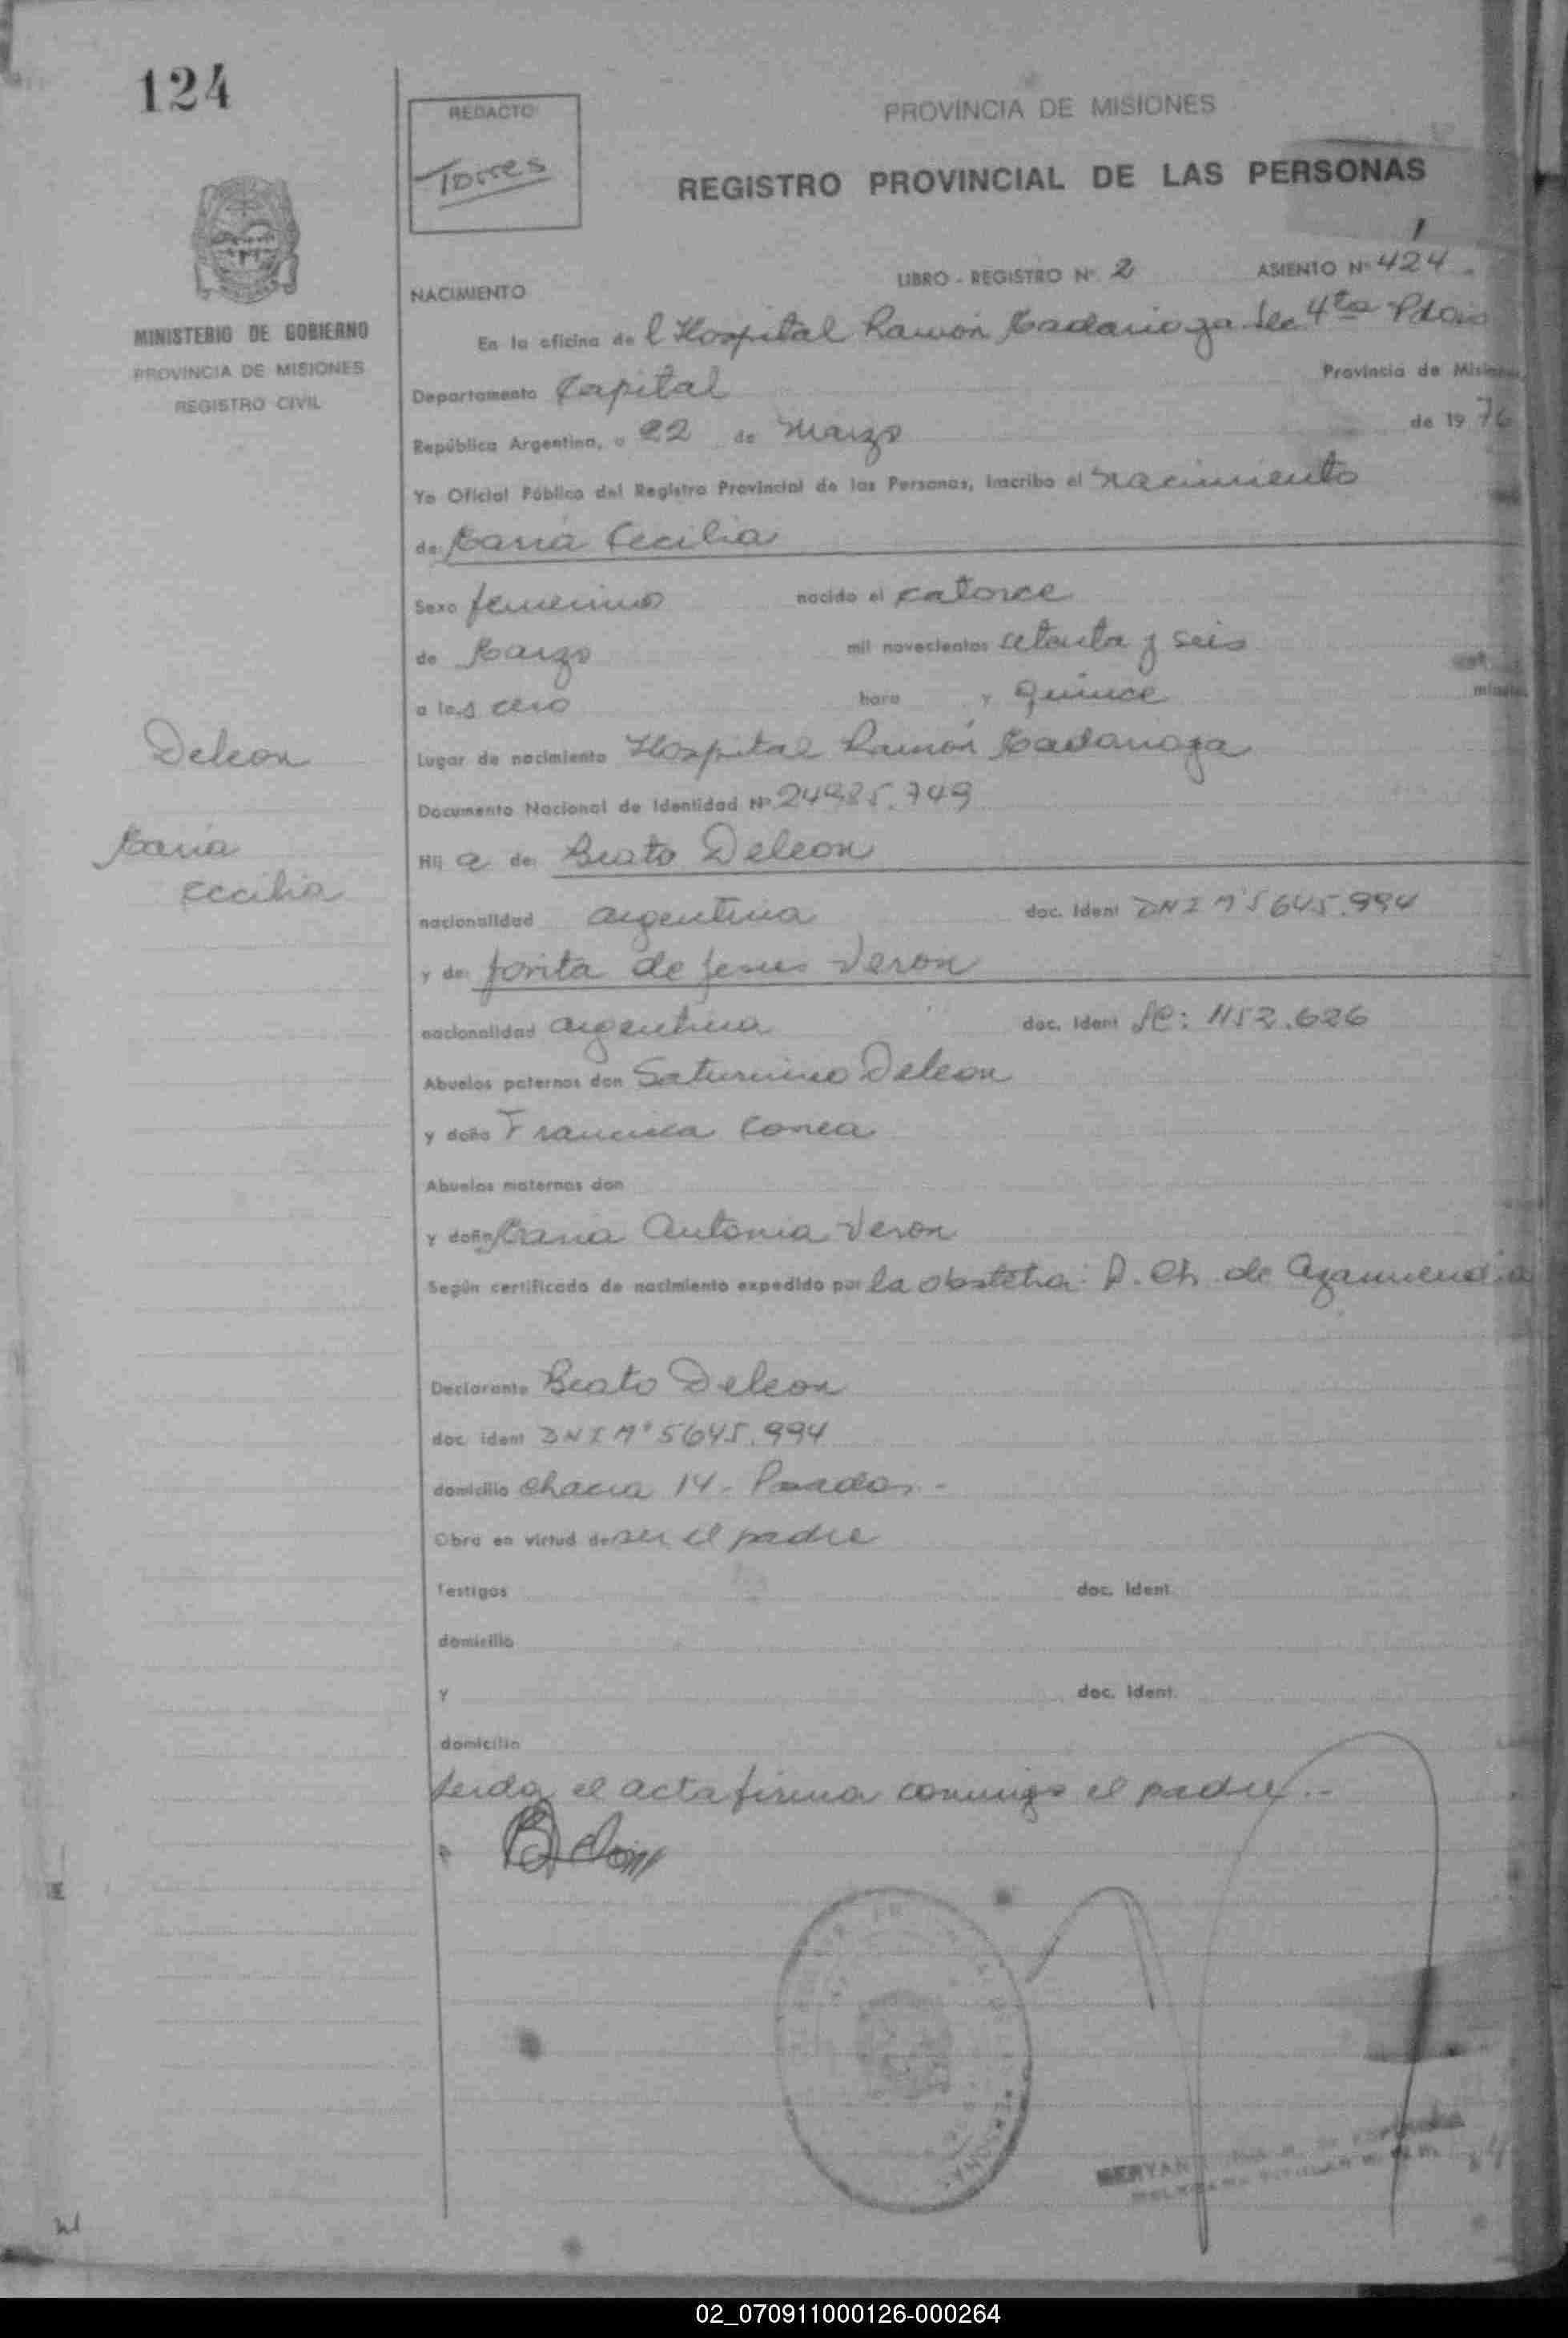 124
REDACTO
Torres
PROVINCIA DE MISIONES
REGISTRO PROVINCIAL DE LAS PERSONAS
MINISTERIO DE GOBIERNO
PROVINCIA DE MISIONES
REGISTRO CIVIL
LIBRO - REGISTRO Nº 2 ASIENTO Nº 424
NACIMIENTO
En la oficina del Hospital Ramón Madariaga Sec 4ta Pdas
Departamento Capital Provincia de Misiones
República Argentina, a 22 de Marzo de 1976
Yo Oficial Público del Registro Provincial de las Personas, inscribo el nacimiento
de: María Cecilia
Sexo femenino nacido el catorce
de Marzo mil novecientos setenta y seis
a las cero hora y quince minutos
Deleon
Lugar de nacimiento Hospital Ramón Madariaga
Documento Nacional de Identidad Nº 24985.749
María
Cecilia
Hij a de: Beato Deleon
nacionalidad argentina doc. Ident DNI Nº 5645.994
y de: Jorita de Jesus Veron
nacionalidad argentina doc. Ident LC: 1152.626
Abuelos paternos don Saturnino Deleon
y doña Francisca Correa
Abuelos maternos don
Y doña María Antonia Veron
Según certificado de nacimiento expedido por la obstetra: D. Ch. de Azamendia
Declarante Beato Deleon
doc. ident DNI Nº 5645.994
domicilio Chacra 14 - Posadas -
Obra en virtud de ser el padre
Testigos doc. Ident.
domicilio
Y doc. Ident.
domicilio
Leida el acta firma conmigo el padre.-
02_070911000126-000264